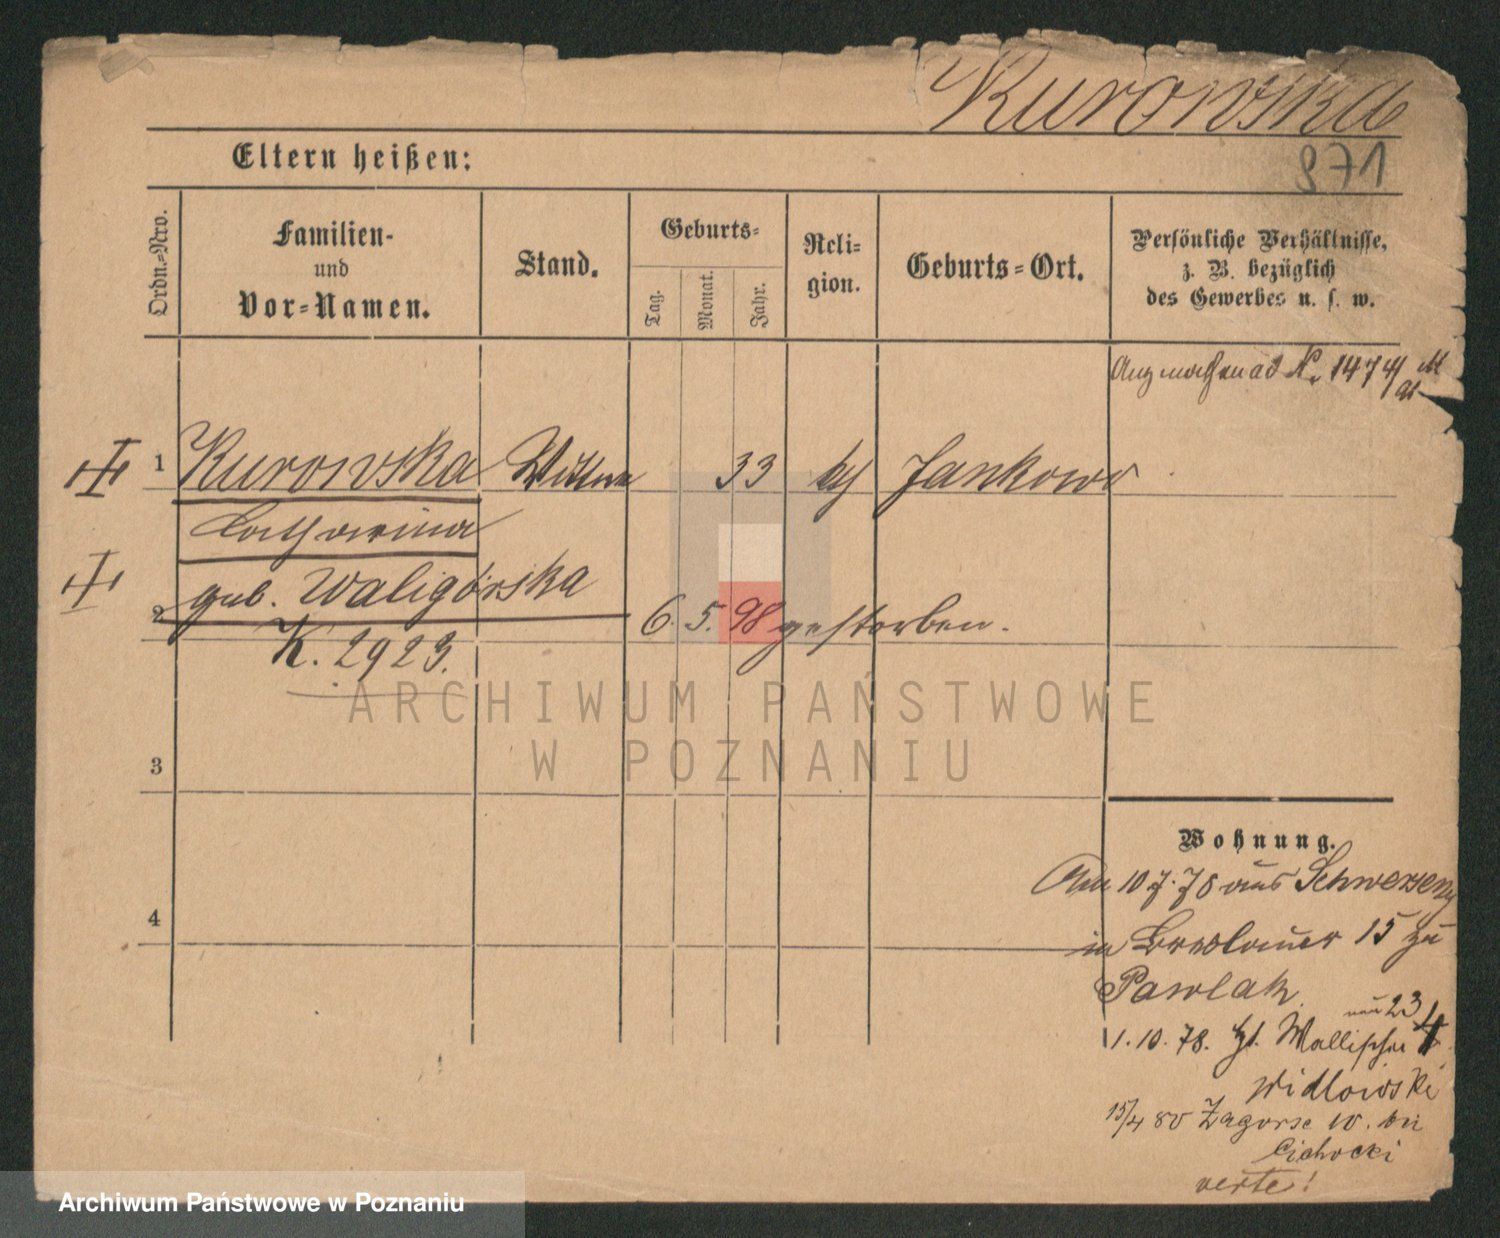 Kurowska
871
Eltern heißen:
Ordn.-Nro.
Familien-
und
Vor-Namen.
Stand.
Geburts-
Tag.
Monat.
Jahr.
Reli-
gion.
Geburts-Ort.
Persönliche Verhältnisse,
z. B. bezüglich
des Gewerbes u. s. w.
ad N. 1474/
1 Kurowska Wittwe 33 kth Jankowo
Catharina
geb. Waligórska
2 6. 5. 98 gestorben.
K. 2923.
ARCHIWUM PAŃSTWOWE
W POZNANIU
3
Wohnung.
4
Am 10 7. 78 aus Schwersenz
in Breslauer 15 zu
Pawlak
23
1. 10. 78. Wallischei 4
Widlowski
15/4 80 Zagorze 10. bei
Cichocki
verte!
Archiwum Państwowe w Poznaniu